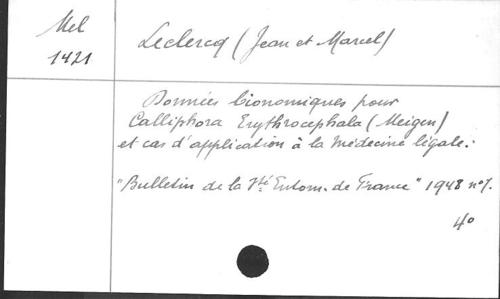 Mel
1421
Leclercq (Jean et Marcel)
Données bionomiques pour
Calliphora Erythrocephala (Meigen)
et cas d'application à la Médecine légale.
"Bulletin de la Sté Entom. de France" 1948 n° 7.
4°